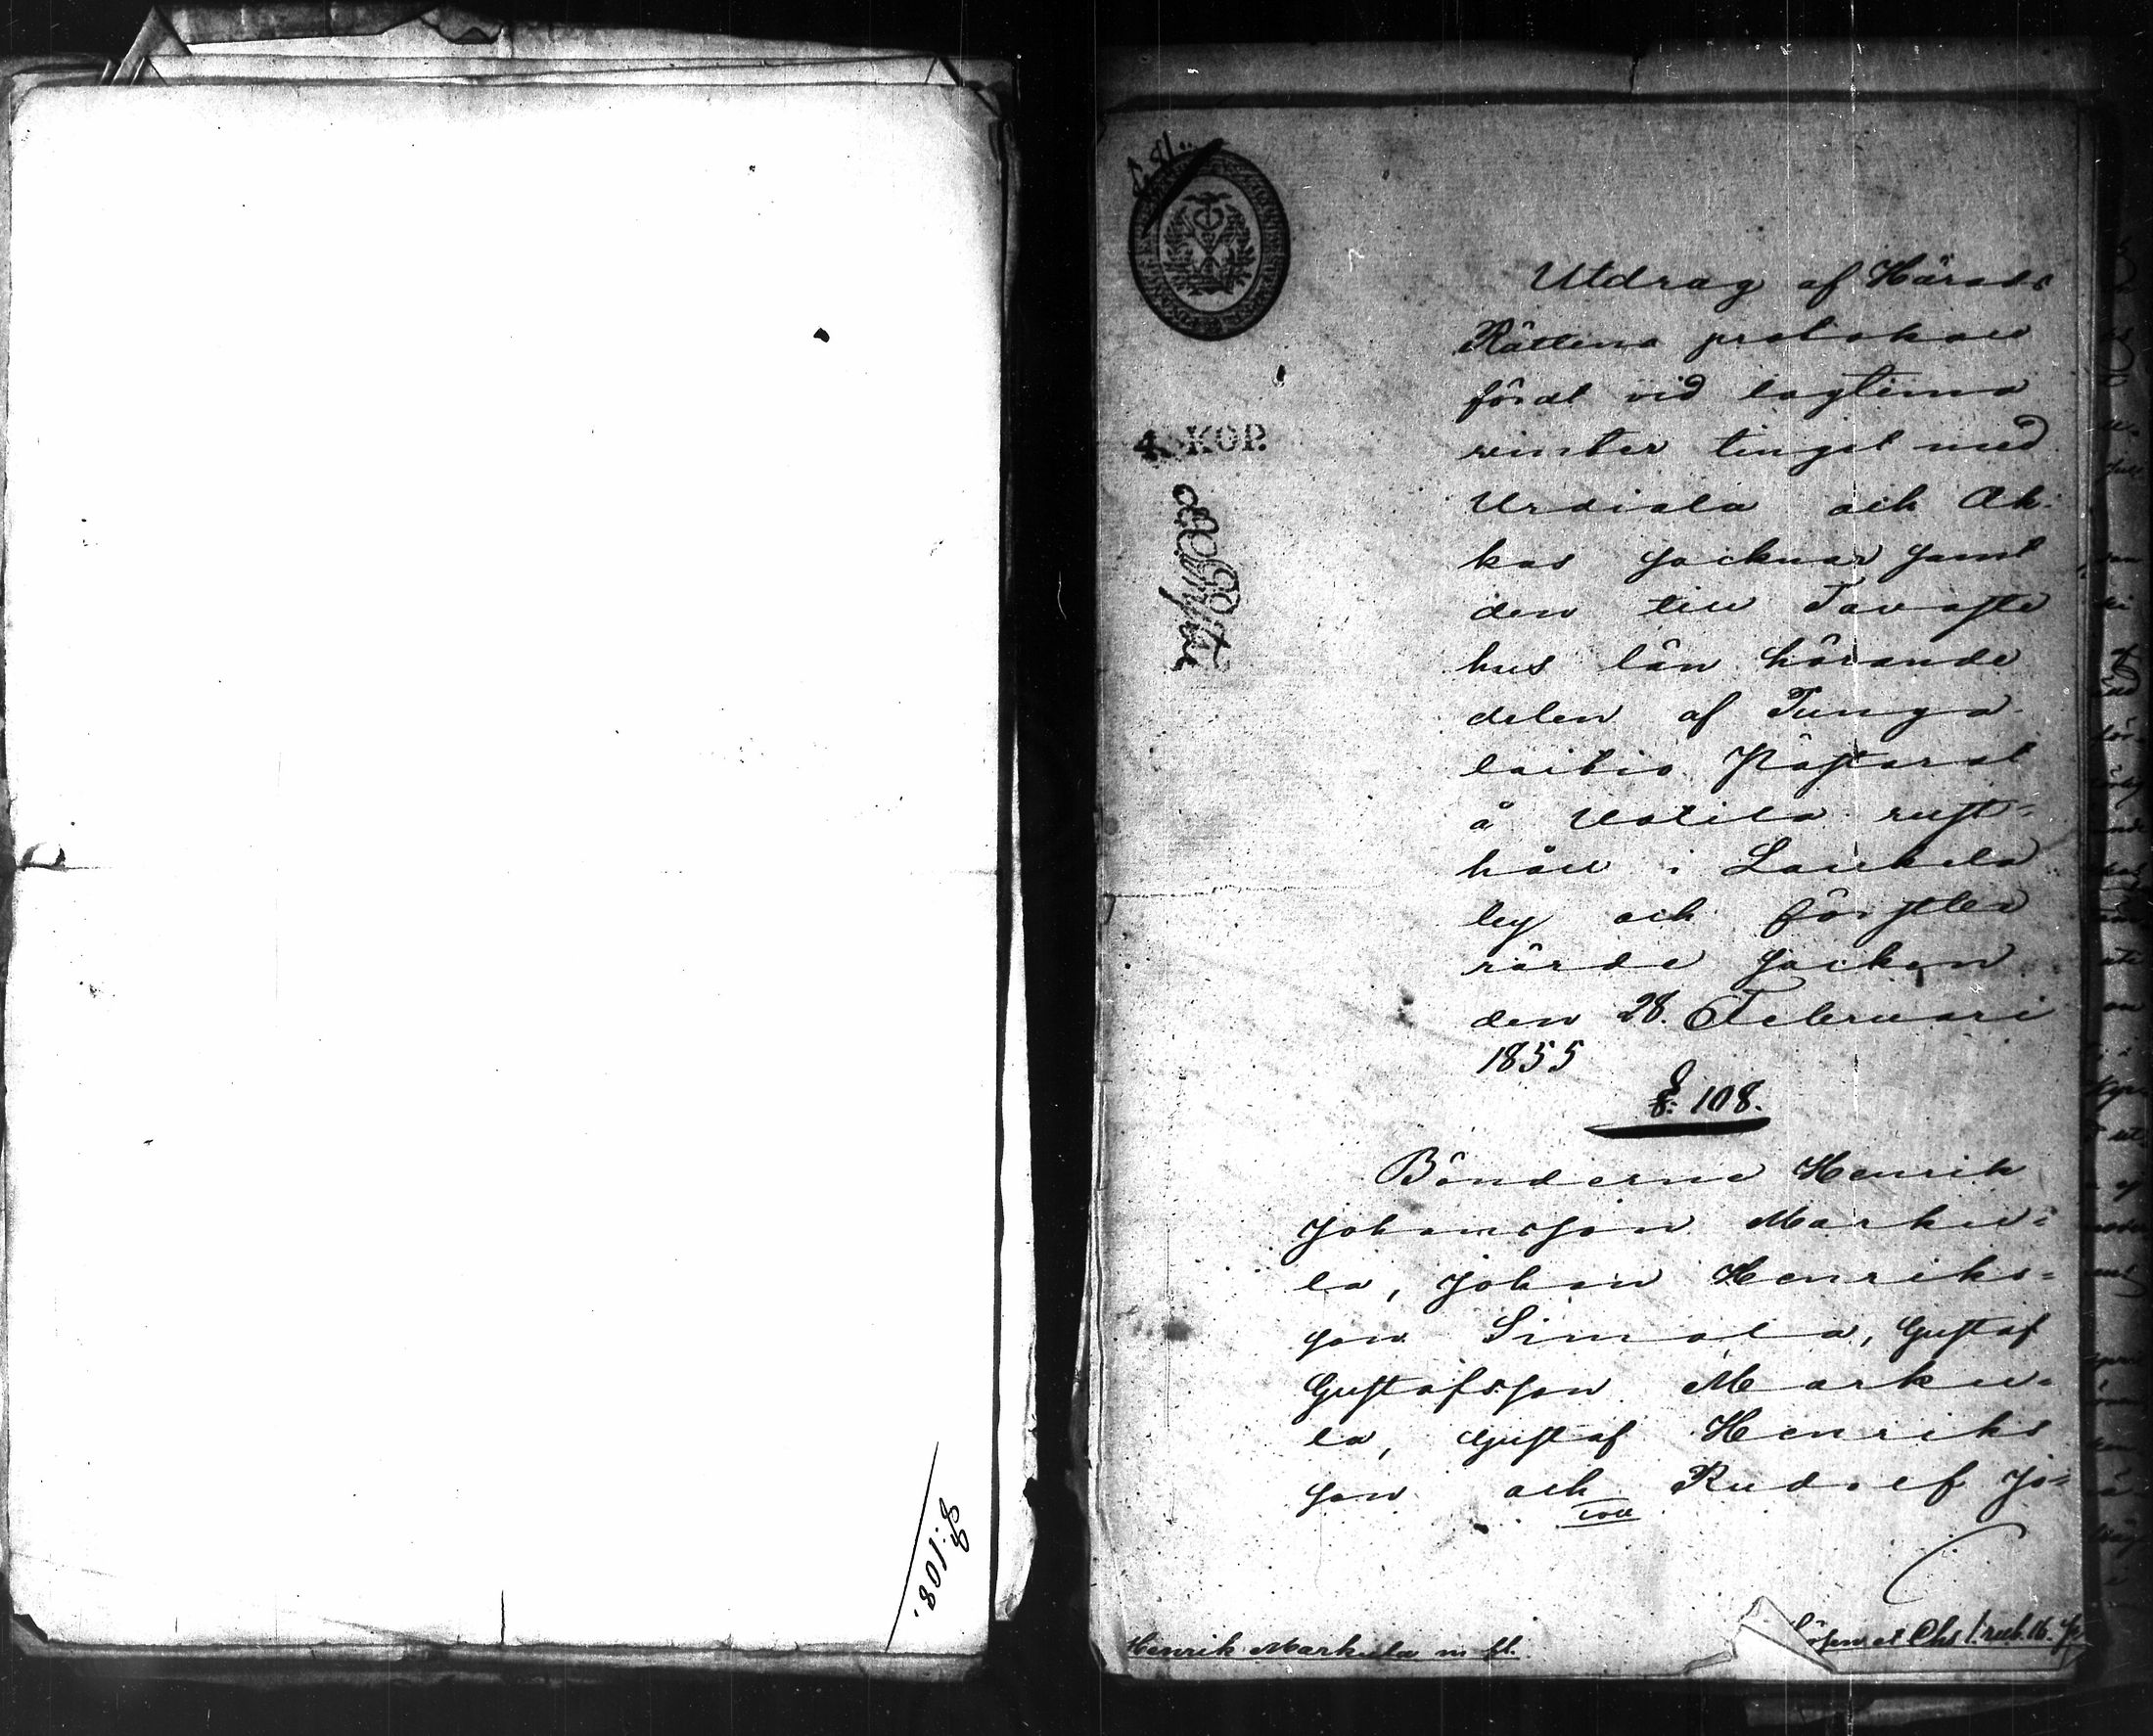 §: 108.
4 KOP.
Utdrag af Härads
Rättens protokoll
fördt vid lagtima
vinter tinget med
Urdiala och Ak-
kas socknar samt
den till Tavaste
hus län hörande
delen af Punga
laitio Pastorat
å Uotila rust=
håll i Laukela
by och förstbe
rörde socken
den 28. Februari
1855
§. 108.
Bönderne Henrik
Johansson Marku=
la, Johan Henriks=
son Simola, Gustaf
Gustafsson Marku=
la, Gustaf Henriks
son och Rudolf Jo=
Henrik Markula m. fl.
Lösen et Chs 1. rub. 16.